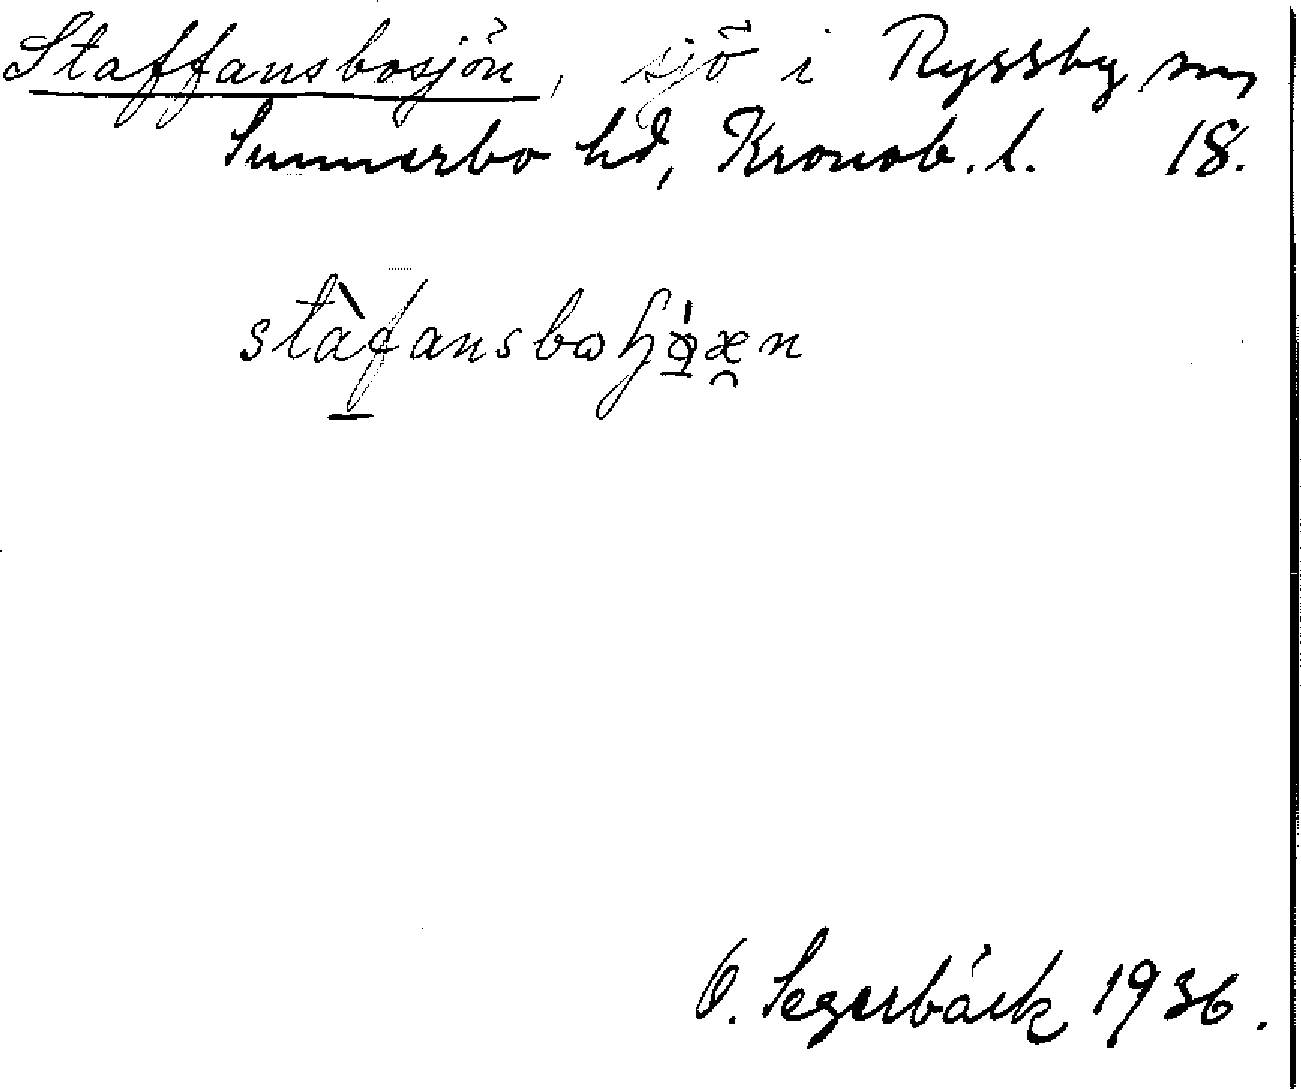 Staffansbosjön, sjö i Ryssby sn,
Sunnerbo hd, Kronob. l. 18.
stàfansboɧø̀æn
O. Segerbäck 1936.